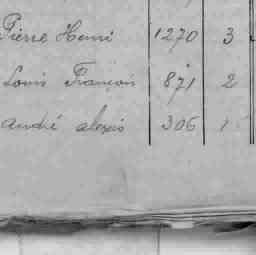 Pierre Henri 1270 3
Louis François 871 2
André Alexis 306 1